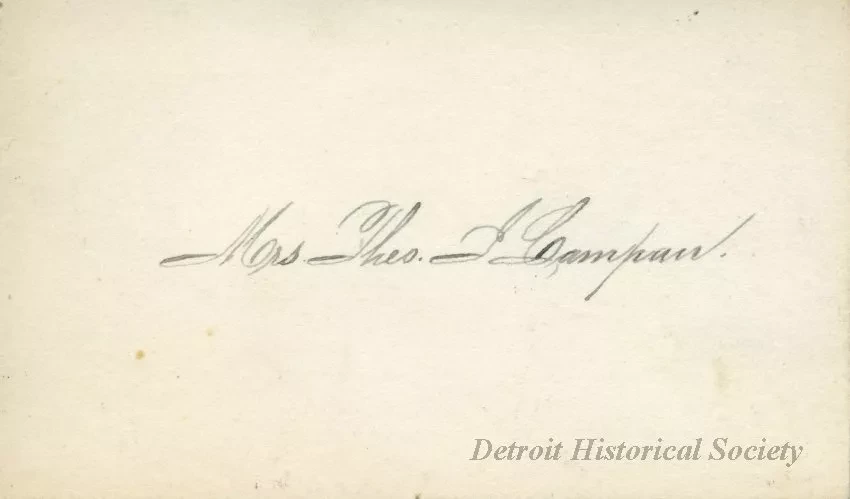 Mrs. Theo. J Campau.
Detroit Historical Society